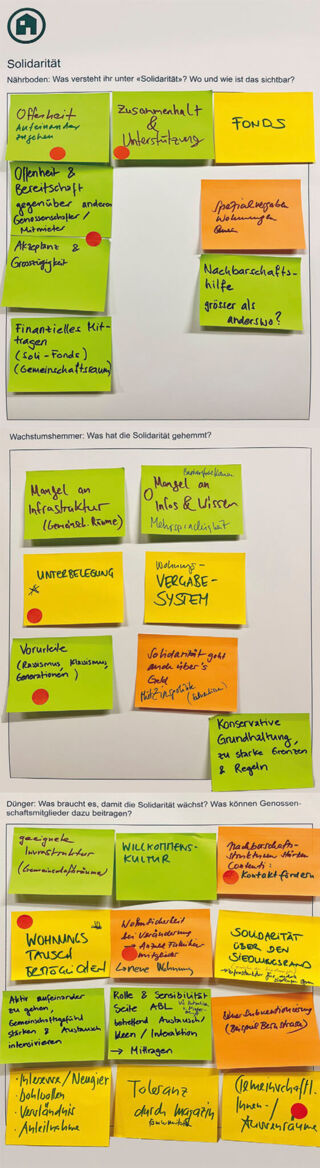 Solidarität
Nährboden: Was versteht ihr unter «Solidarität»? Wo und wie ist das sichtbar?
Offenheit
Aufeinander
zugehen
Zusammenhalt
&
Unterstützung
FONDS
Offenheit &
Bereitschaft
gegenüber anderen
Genossenschafter/
Mitmieter
Akzeptanz &
Grosszügigkeit
Spezialvergaben
Wohnungen
Nachbarschafts-
hilfe
grösser als
anderswo?
Finanzielles Mit-
tragen
(Soli-Fonds)
(Gemeinschaftsraum)
Wachstumshemmer: Was hat die Solidarität gehemmt?
Mangel an
Infrastruktur
(Gemeinsch. Räume)
Mangel an
Infos & Wissen
Mehrsprachigkeit
UNTERBELEGUNG
Wohnungs-
VERGABE-
SYSTEM
Vorurteile
(Rassismus, Klassismus,
Generationen)
Solidarität geht
auch über's
Geld
Mietzinspolitik
Konservative
Grundhaltung,
zu starke Grenzen
& Regeln
Dünger: Was braucht es, damit die Solidarität wächst? Was können Genossen-
schaftsmitglieder dazu beitragen?
geeignete
Infrastruktur
(Gemeinschaftsräume)
WILLKOMMENS-
KULTUR
Nachbarschafts-
strukturen stärken
Contenti:
Kontakt fördern
WOHNUNGS
TAUSCH
ERMÖGLICHEN
Wohnsicherheit
bei Veränderung
→ Anzahl Familien-
mitglieder
Wohnung
SOLIDARITÄT
ÜBER DEN
SIEDLUNGSRAND
Aktiv aufeinander
zu gehen,
Gemeinschaftsgefühl
stärken & Austausch
intensivieren
Rolle & Sensibilität
Seite ABL
betreffend Austausch/
Ideen/Interaktion
→ Mittragen
Quersubventionierung
(Beispiel Bernstrasse)
· Interesse/Neugier
· Wohlwollen
· Verständnis
· Anteilnahme
Toleranz
durch Magazin
Gemeinschaftl.
Innen-/
Aussenräume